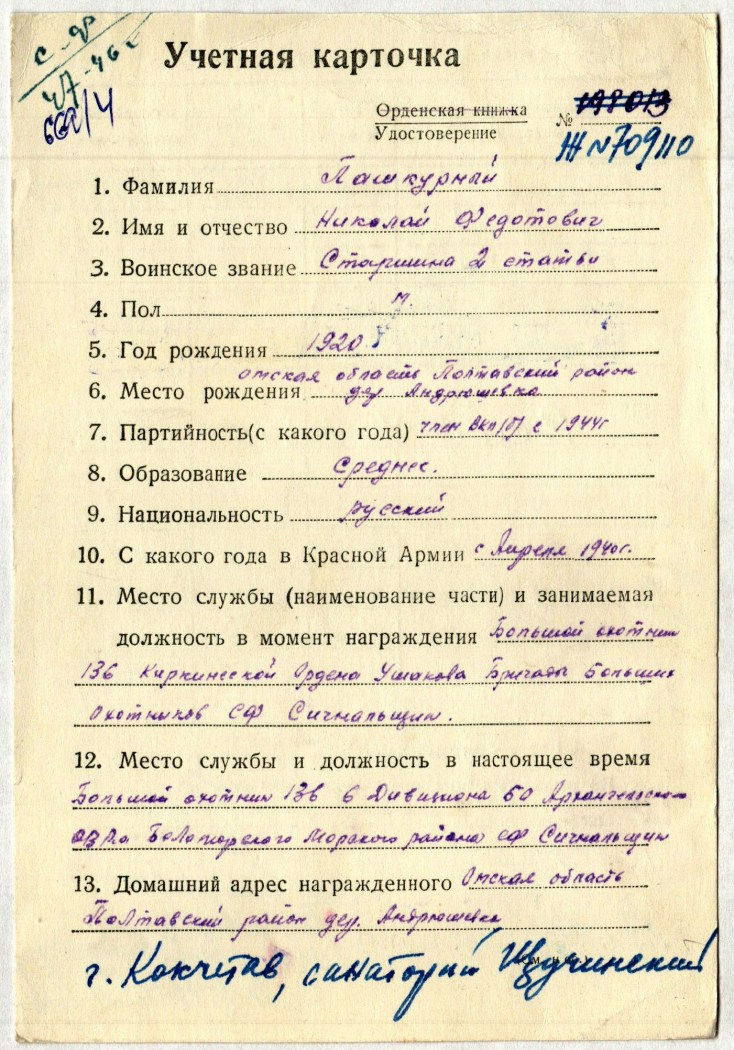 с-ф
47-46 г
Учетная карточка
662/4
Орденская книжка
Удостоверение
№ 198013
Ж №709110
1. Фамилия Пашкурный
2. Имя и отчество Николай Федотович
3. Воинское звание Старшина 2 статьи
4. Пол м.
5. Год рождения 1920
омская область Полтавский район
6. Место рождения дер Андрюшевка
7. Партийность(с какого года) член Вкп/б/ с 1944г
8. Образование среднее.
9. Национальность русский
10. С какого года в Красной Армии с Апреля 1940г.
11. Место службы (наименование части) и занимаемая
должность в момент награждения Большой охотник
136 Киркинесской Ордена Ушакова Бригады Больших
Охотников СФ Сигнальщик.
12. Место службы и должность в настоящее время
Большой охотник 136 6 Дивизиона БО Архангельского
ОВРа Беломорского Морского района СФ Сигнальщик
13. Домашний адрес награжденного Омская область
Полтавский район дер. Андрюшевка
г. Кокчетав, санаторий Щучинский